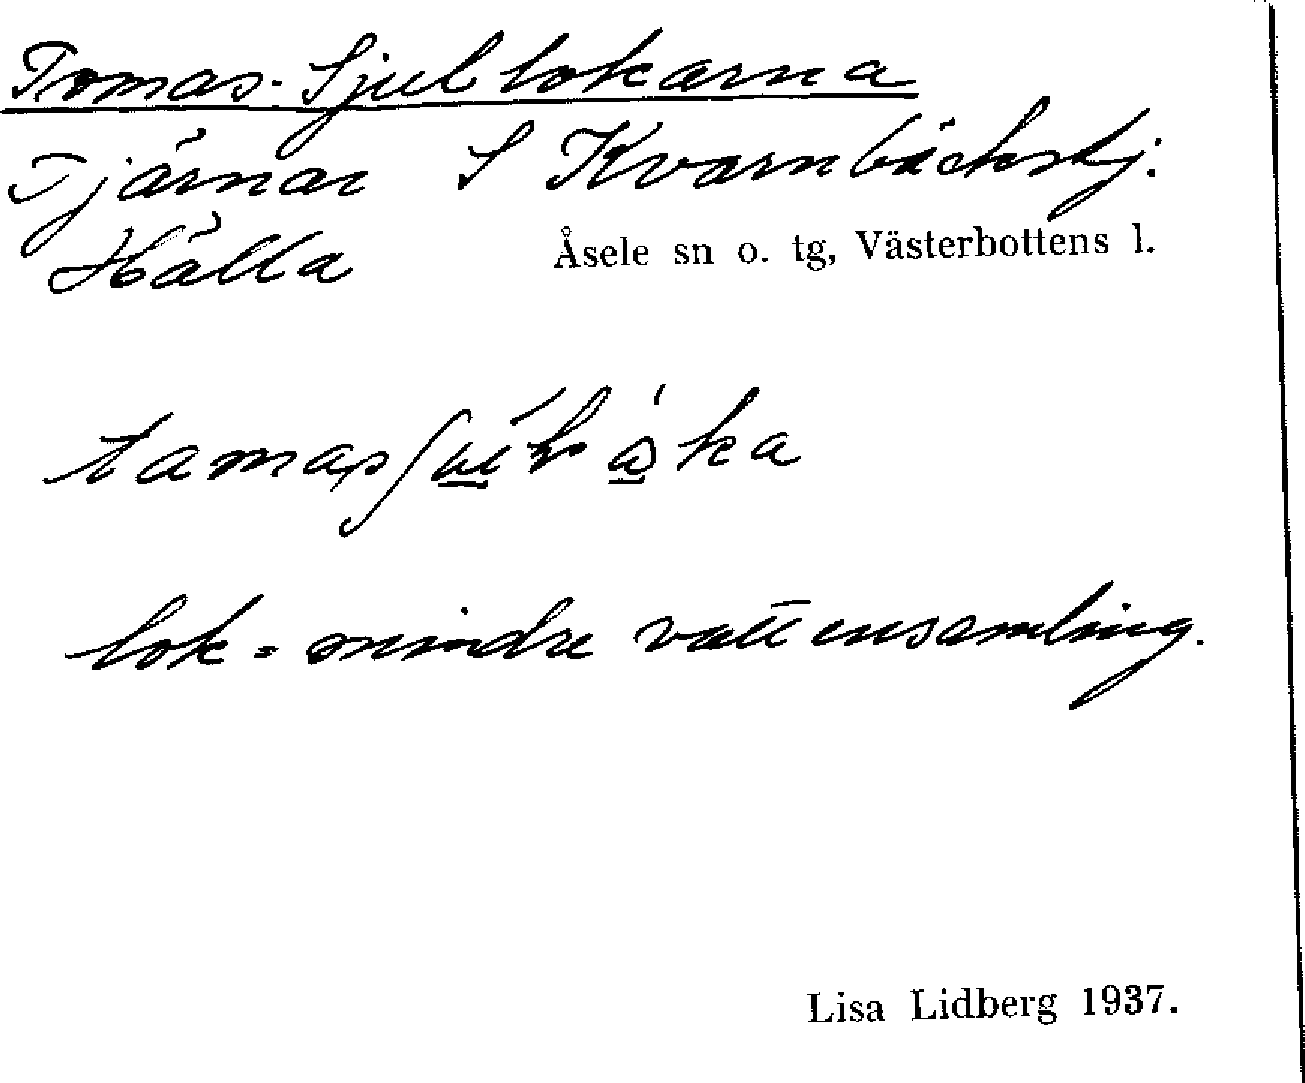 Tomas-Sjullokarna
Tjärnar S Kvarnbäckstj.
Hälla Åsele sn o. tg, Västerbottens l.
lok = mindre vattensamling.
Lisa Lidberg 1937.